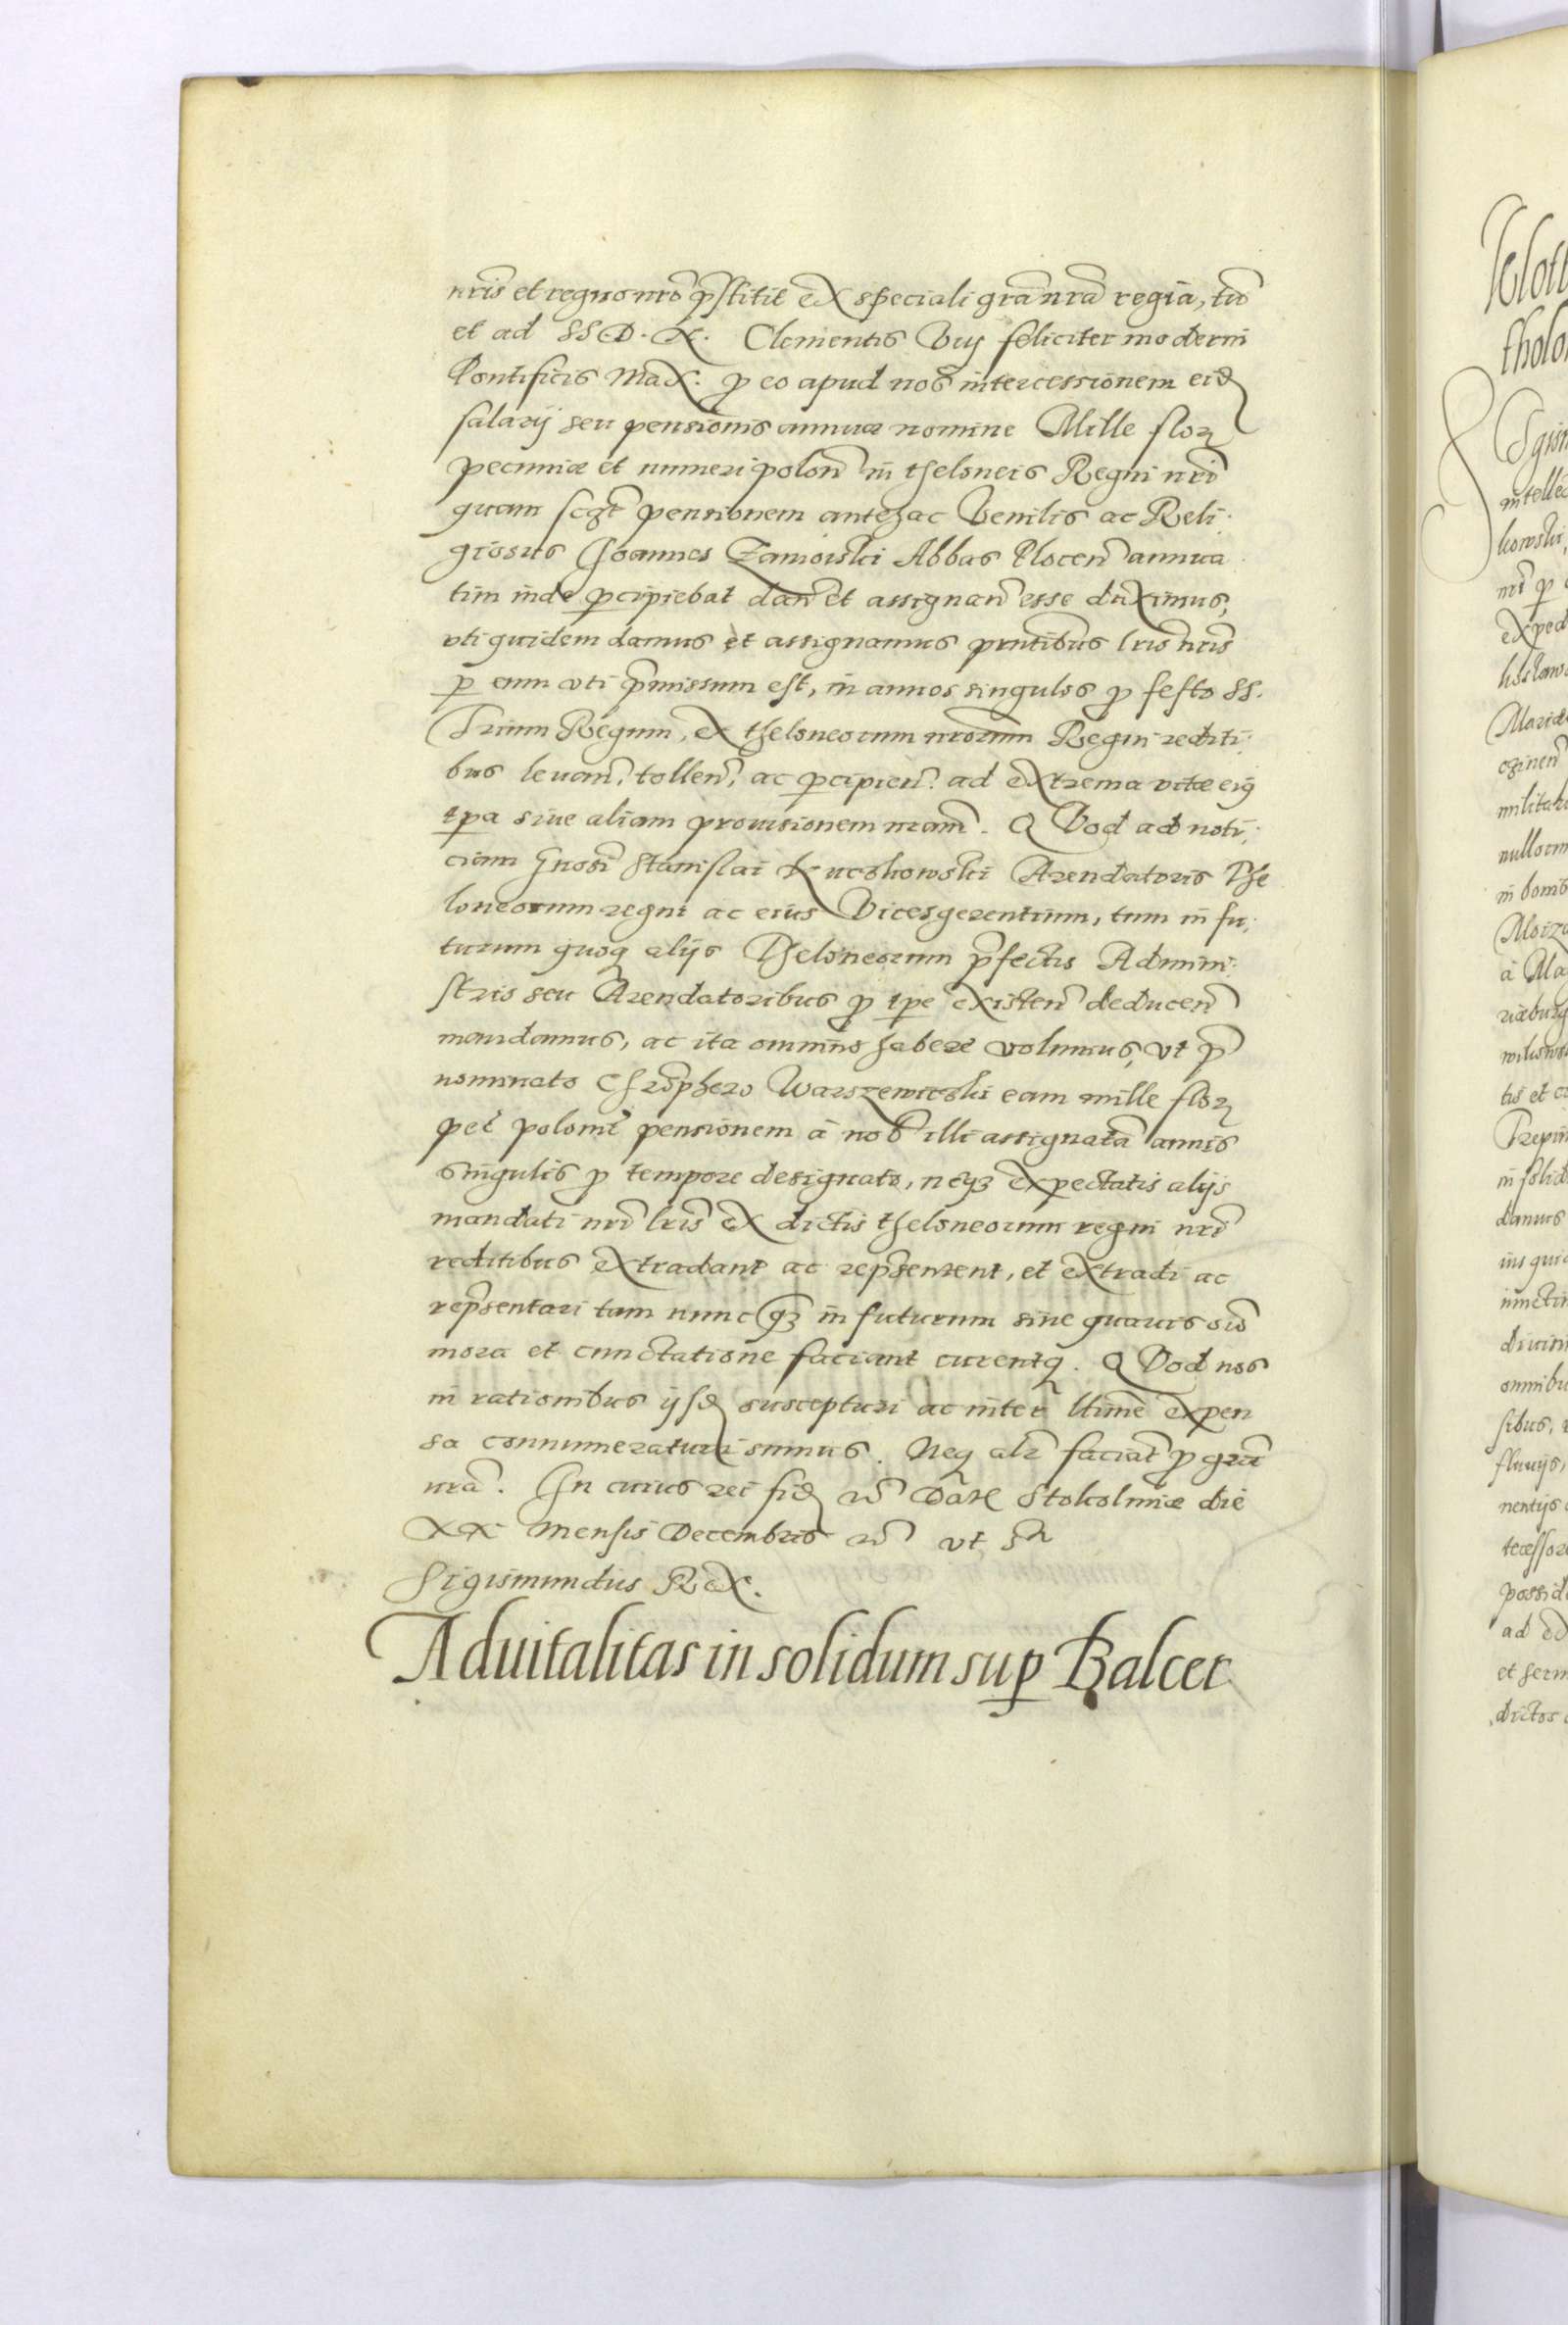 nris et regno nro pstitit ex speciali gra nra regia, tu
et ad SS. D. N. Clementis Viij feliciter moderni
Pontificis Max. p eo apud nos intercessionem eid
salarij seu pensionis annuæ nomine Mille flor
pecuniæ et numeri polon in theloneis Regni nri
quam scqt pensionem antehac Venilis ac Reli
giosus Joannes Zamoiski Abbas Plocen annua
tim inde pcipiebat dan et assignan esse duximus,
vti quidem damus et assignamus pntibus lris nris
p eum vti pmissum est, in annos singulos p festo SS.
Trium Regum, ex theloneorum nrorum Regni rediti
bus levan, tollen, ac pcipien ad extrema vitæ eig
tpa sive aliam provisionem nram. QVod ad noti
ciam Gnosi Stanislai Kucskowski Arendatoris The
loneorum regni ac eius Vicesgerentium, tum in fu
turum quoq alijs Theloneorum pfectis Admini
stris seu Arendatoribus p tpe existen deducen
mandamus, ac ita omnino habere volumus, vt p
nominato Chrophero Warszewicski eam mille flor
pet polonit pensionem à nob illi assignata annis
singulis p tempore designato, neq3 expectatis alijs
mandati nri lris ex dictis theloneorum regni nri
reditibus extradant ac repsentent, et extradi ac
repsentari tam nunc q3 in futurum sine quavis oio
mora et cunctatione faciant curentq. QVod nos
in rationibus ijsd suscepturi ac inter ltime expen
sa connumeraturi sumus. Neq alr faciat p gra
nra. In cuius rei fid Dat Stokolmiæ die
XX Mensis Decembris vt S
Sigismundus Rex.
Aduitalitas in solidum sup Balcer